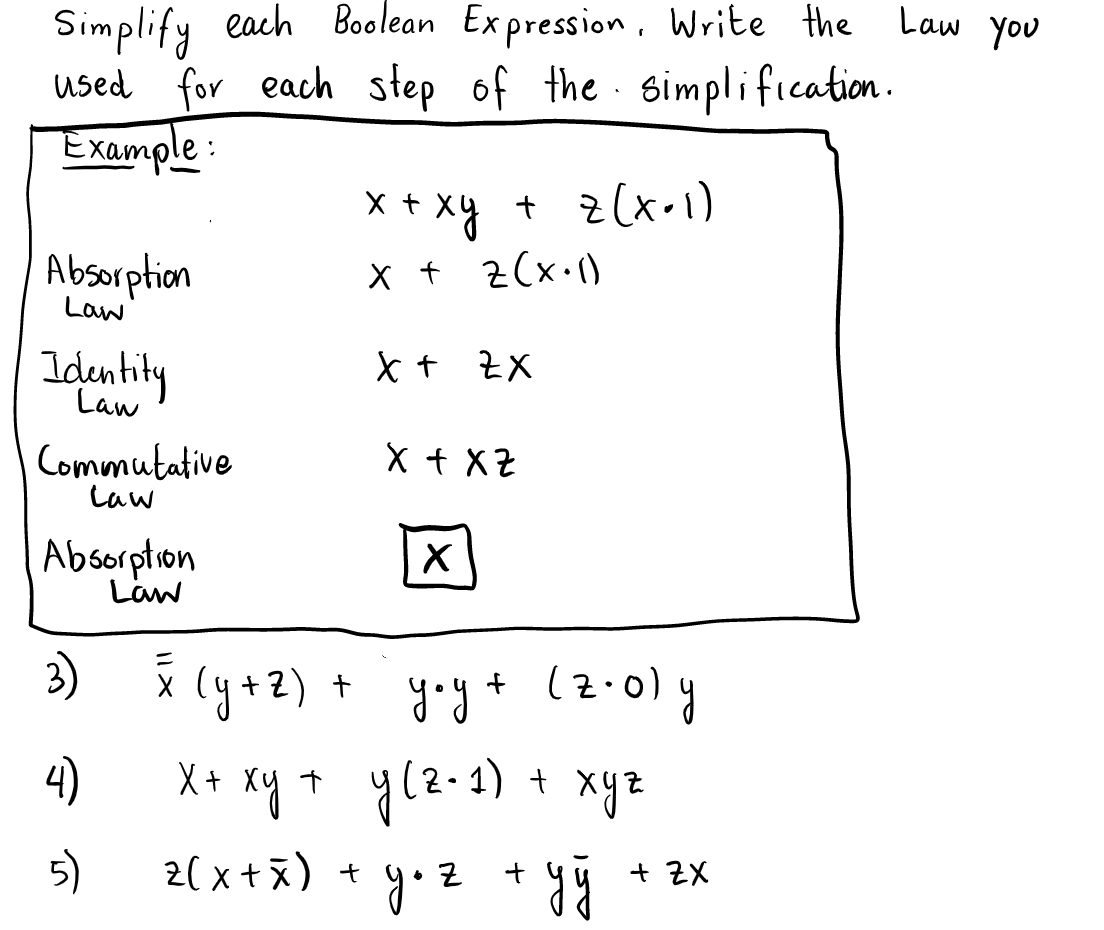 Simplify each Boolean Expression. Write the Law you
used for each step of the simplification.
Example:
x + xy + z(x·1)
Absorption Law x + z(x·1)
Identity Law x + zx
Commutative Law x + xz
Absorption Law x
3) x̿̿ (y+z) + y·y + (z·0) y
4) x + xy + y(z·1) + xyz
5) z(x+x̄) + y·z + yȳ + zx